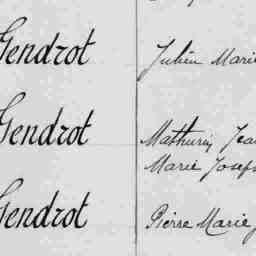 Gendrot Julien Marie
Gendrot Mathurin Jean
Marie Joseph
Gendrot Pierre Marie